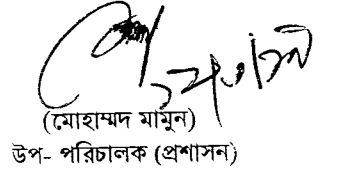 (মোহাম্মদ মামুন)
উপ- পরিচালক (প্রশাসন)